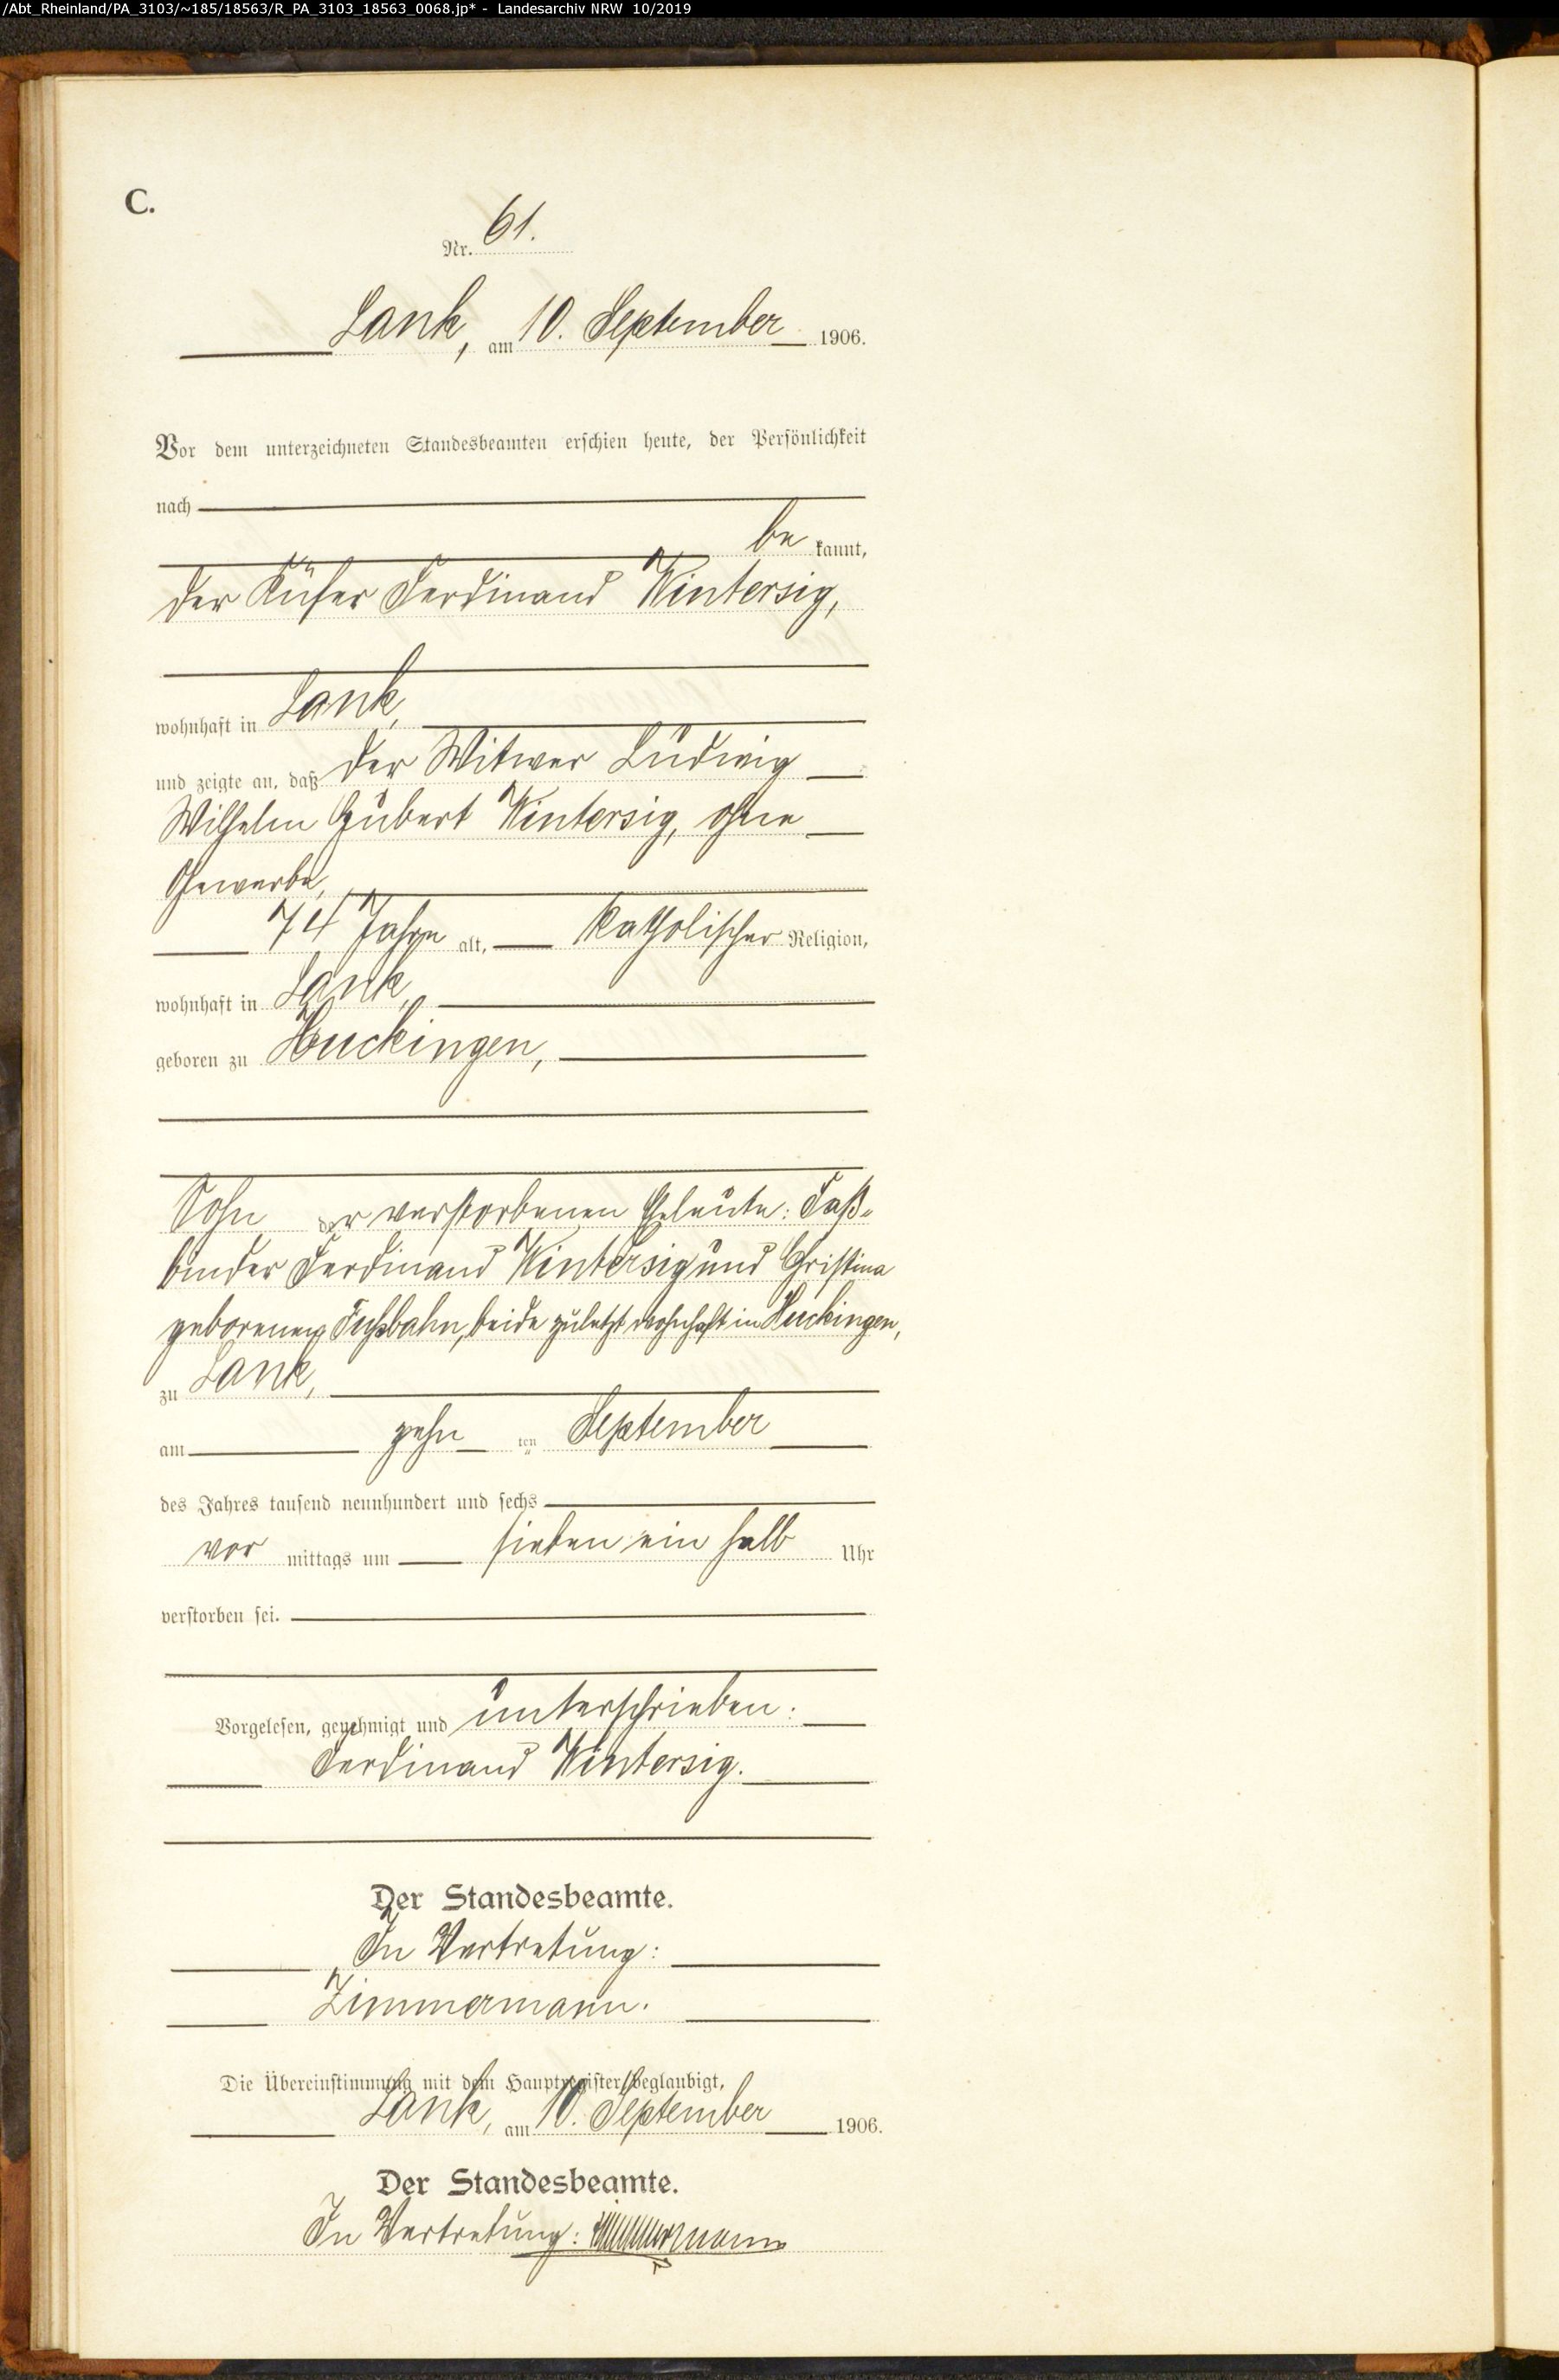 /Abt_Rheinland/PA_3103/~185/18563/R_PA_3103_18563_0068.jp* - Landesarchiv NRW 10/2019
C.
Nr. 61.
Lank, am 10. September 1906.
Vor dem unterzeichneten Standesbeamten erschien heute, der Persönlichkeit
nach
be kannt,
der Küfer Ferdinand Wintersig,
wohnhaft in Lank,
und zeigte an, daß der Witwer Ludwig
Wilhelm Hubert Wintersig, ohne
Gewerbe,
74 Jahre alt, katholischer Religion,
wohnhaft in Lank,
geboren zu Huckingen,
Sohn der verstorbenen Eheleute: Faß-
binder Ferdinand Wintersig und Christina
geborenen beide zuletzt wohnhaft in Huckingen,
zu Lank,
am zehn ten September
des Jahres tausend neunhundert und sechs
vor mittags um sieben ein halb Uhr
verstorben sei.
Vorgelesen, genehmigt und unterschrieben:
Ferdinand Wintersig.
Der Standesbeamte.
In Vertretung:
Zimmermann.
Die Übereinstimmung mit dem Hauptregister beglaubigt,
Lank, am 10. September 1906.
Der Standesbeamte.
In Vertretung: Zimmermann